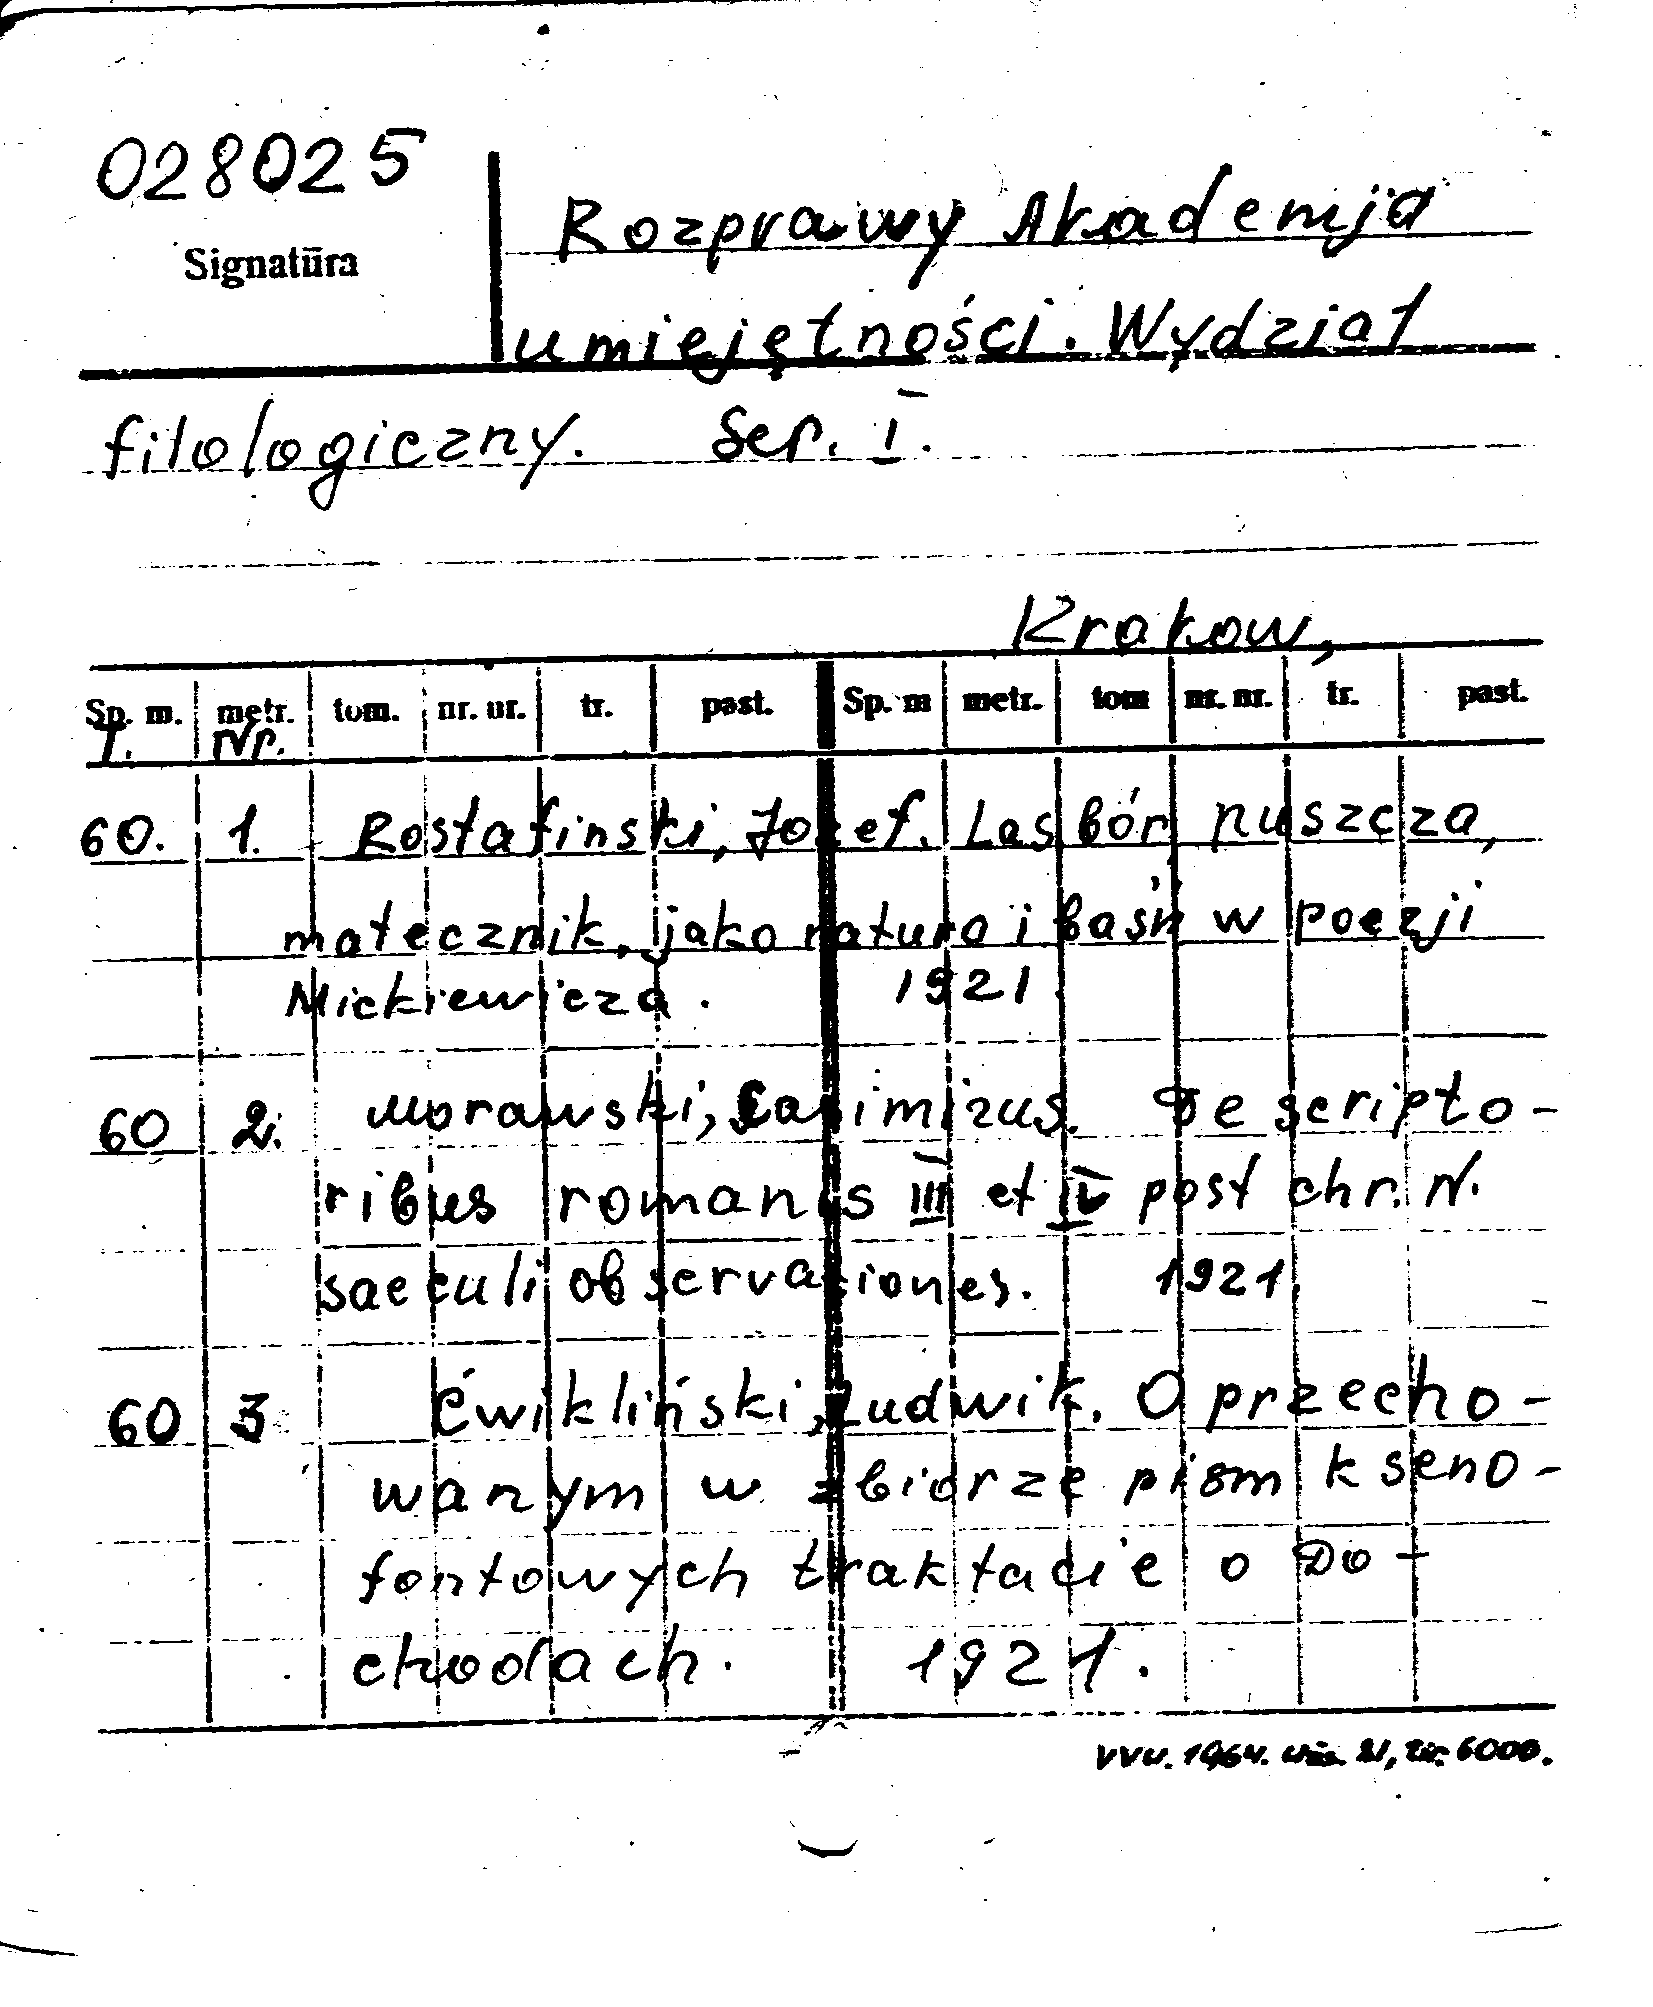 028025
Signatūra
Rozprawy Akademja
umiejętności. Wydział
filologiczny. Ser. I.
Krakow,
Sp. m. metr. tom. nr. nr. tr. past. Sp. m metr. tom nr. nr. tr. past.
T. Nr.
60. 1. Rostafinski, Jozef. Las bór, puszcza,
matecznik, jako natura i baśń w poezji
Mickiewicza. 1921.
60 2. Morawski, Casimirus. De scripto-
ribus romanis III et IV post chr. N.
saeculi observationes. 1921.
60 3 Ćwikliński, Ludwik. O przecho-
wanym w zbiorze pism kseno-
fontowych traktacie o Do-
chodach. 1921.
VVU. 1964. Užs. 21, tir. 6000.